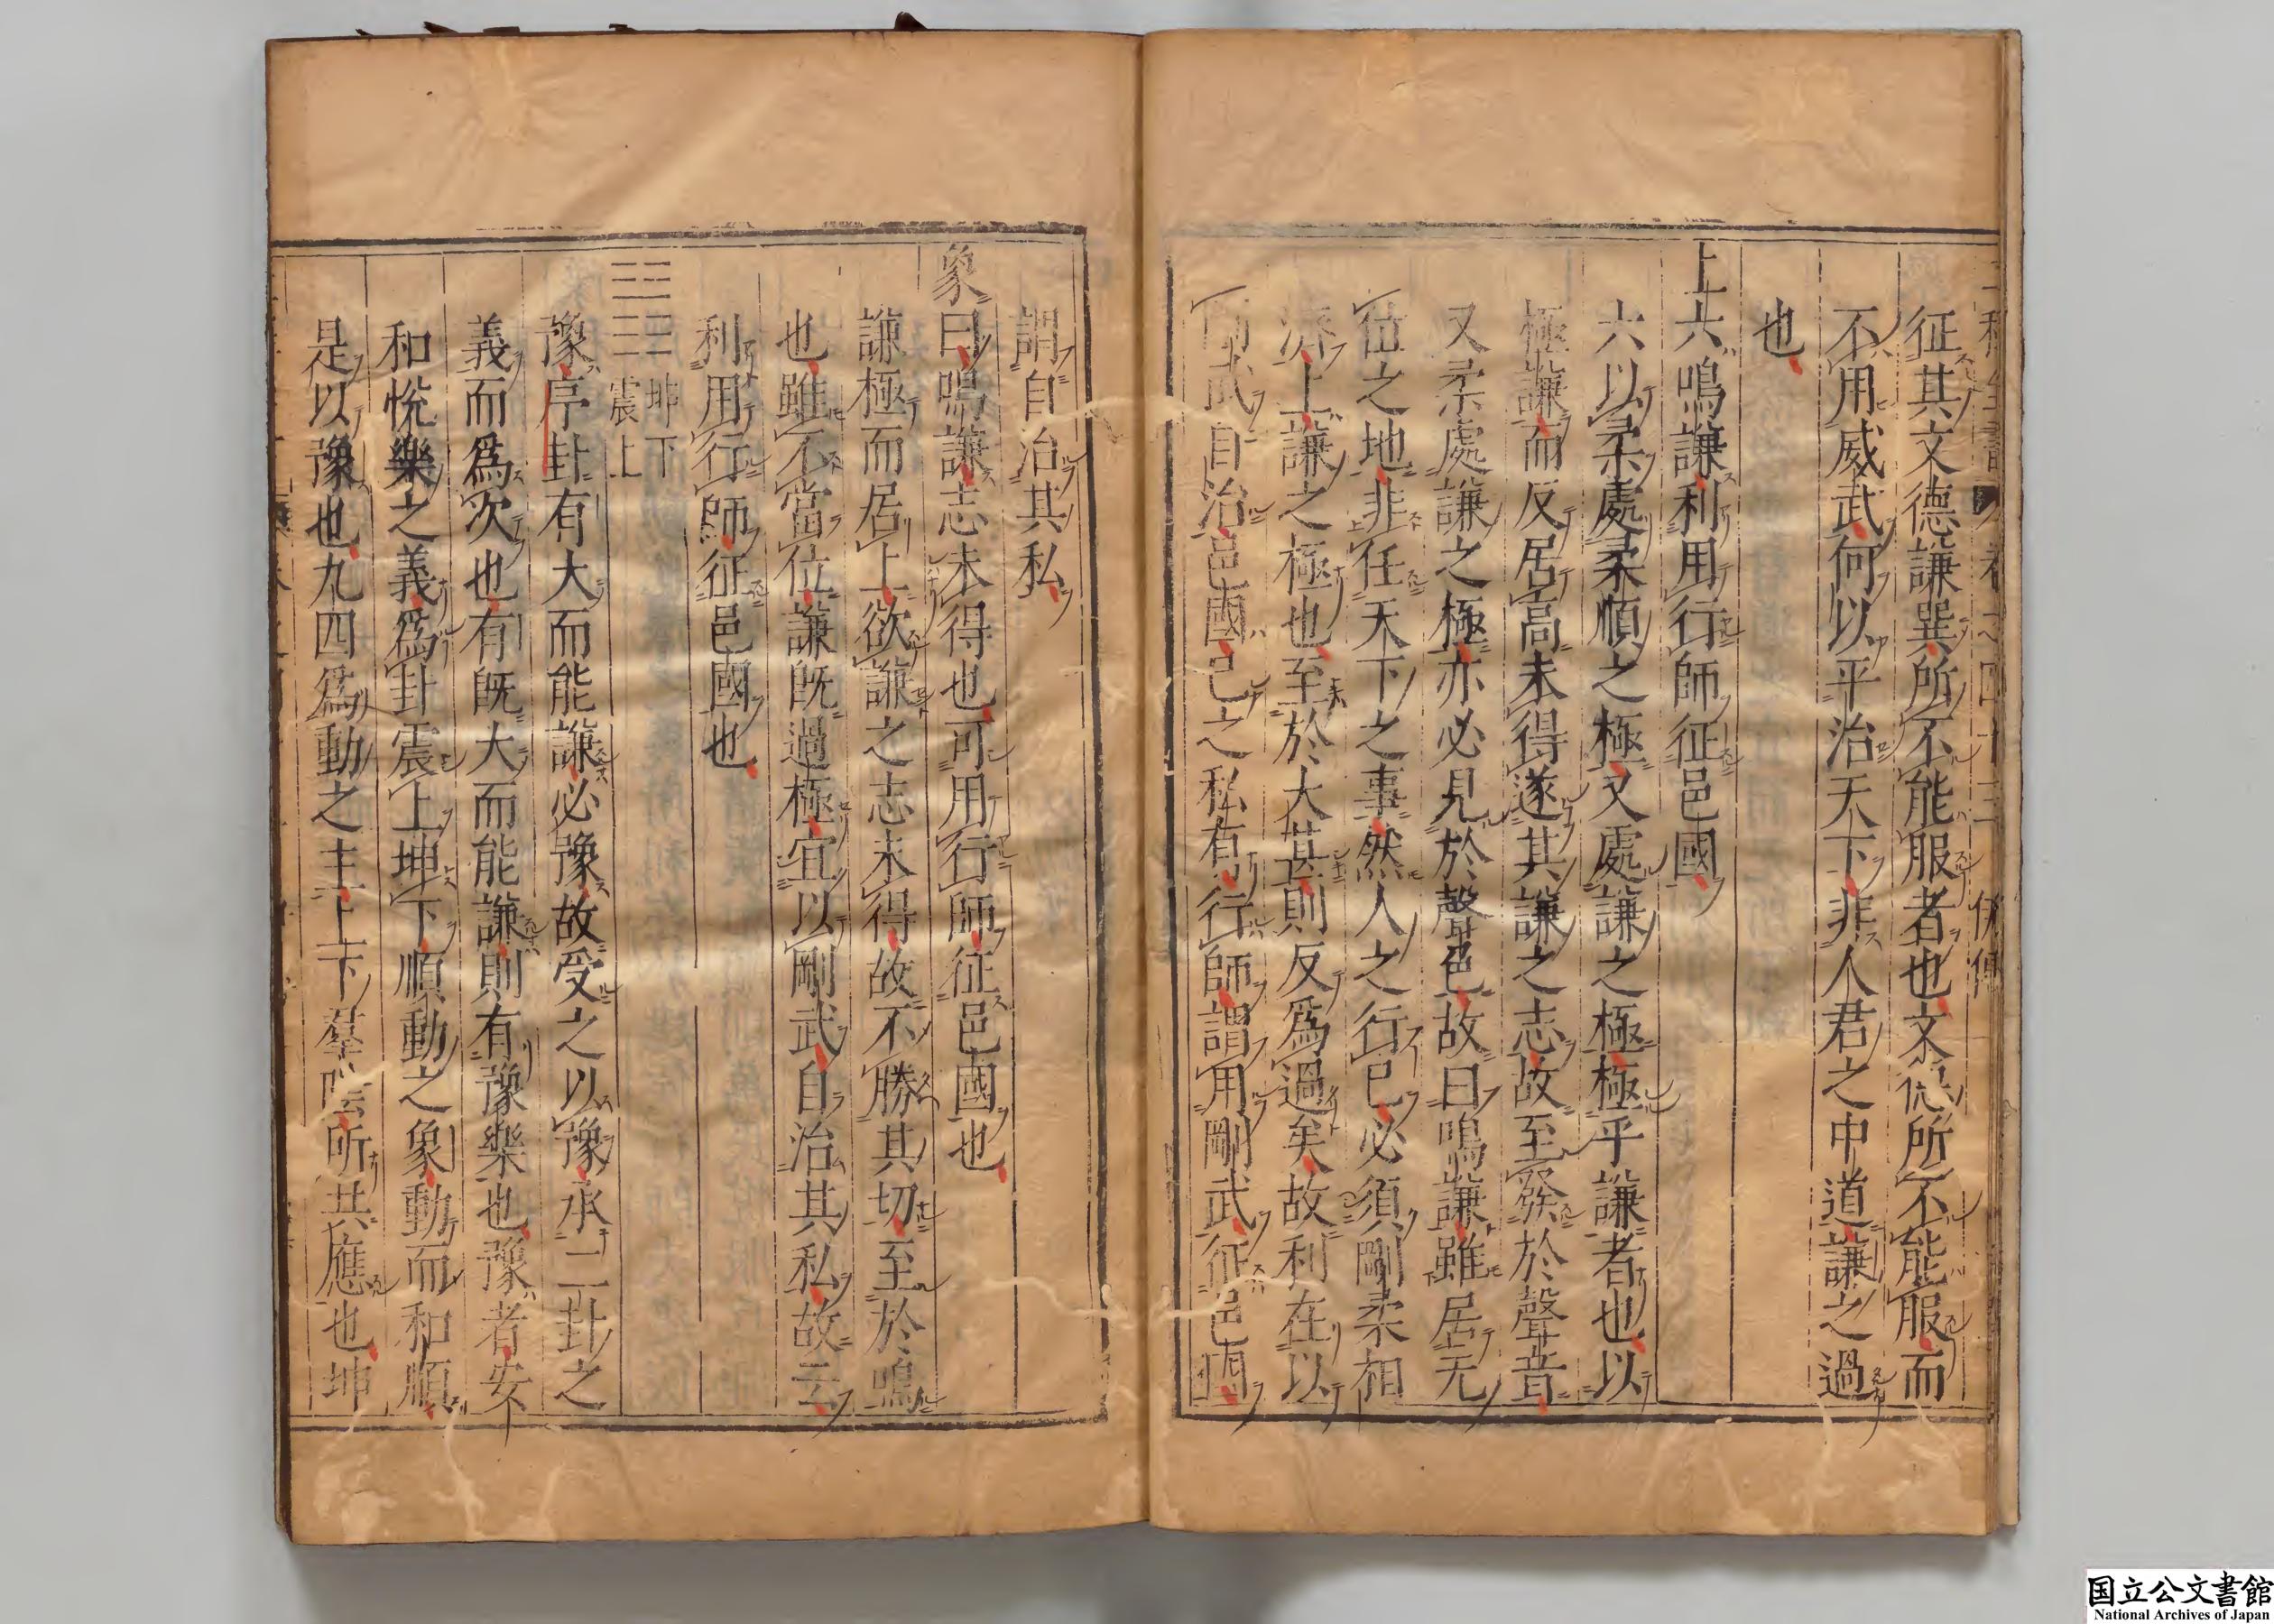 征其文德謙巽所不能服者也文德所不能服而
不用威武何以平治天下非人君之中道謙之過
也
上六鳴謙利用行師征邑國
六以柔處柔順之極又處謙之極極乎謙者也以
極謙而反居高未得遂其謙之志故至發於聲音
又柔處謙之極亦必見於聲色故曰鳴謙雖居无
位之地非任天下之事然人之行已必須剛柔相
濟上謙之極也至於太甚則反爲過矣故利在以
剛武自治邑國已之私有行師謂用剛武征邑國
謂自治其私
象曰鳴謙志未得也可用行師征邑國也
謙極而居上欲謙之志未得故不勝其切至於鳴
也雖不當位謙旣過極宜以剛武自治其私故云
利用行師征邑國也
坤下
震上
豫序卦有大而能謙必豫故受之以豫承二卦之
義而爲次也有旣大而能謙則有豫樂也豫者安
和悅樂之義爲卦震上坤下順動之象動而和順
是以豫也九四爲動之主上下羣陰所共應也坤
国立公文書館
National Archives of Japan